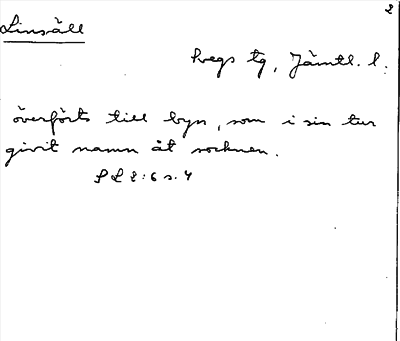 2
Linsäll
hvegs tg, Jämtl. l.
överförts till byn, som i sin tur
givit namn åt socknen.
SL 2:6 s. 4